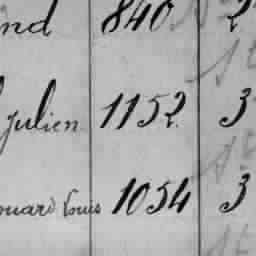 nd 840 2
Julien 1152 3
ouard Louis 1054 3